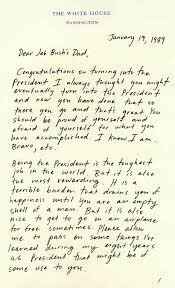 THE WHITE HOUSE
WASHINGTON
January 19, 1989
Dear Jeb Bush's Dad,
Congratulations on turning into the
President. I always thought you might
eventually turn into the President
and now you have done that so
there you go and that's great. You
should be proud of yourself and
afraid of yourself for what you
have accomplished. I know I am.
Bravo, etc.
Being the president is the toughest
job in the world. But it is also
the most rewarding. It is a
terrible burden that drains you of
happiness until you are an empty
shell of a man. But it is also
nice to get to go on an airplane
for free sometimes. Please allow
me to pass on some things I've
learned during my eight years
as President that might be of
some use to you.
1